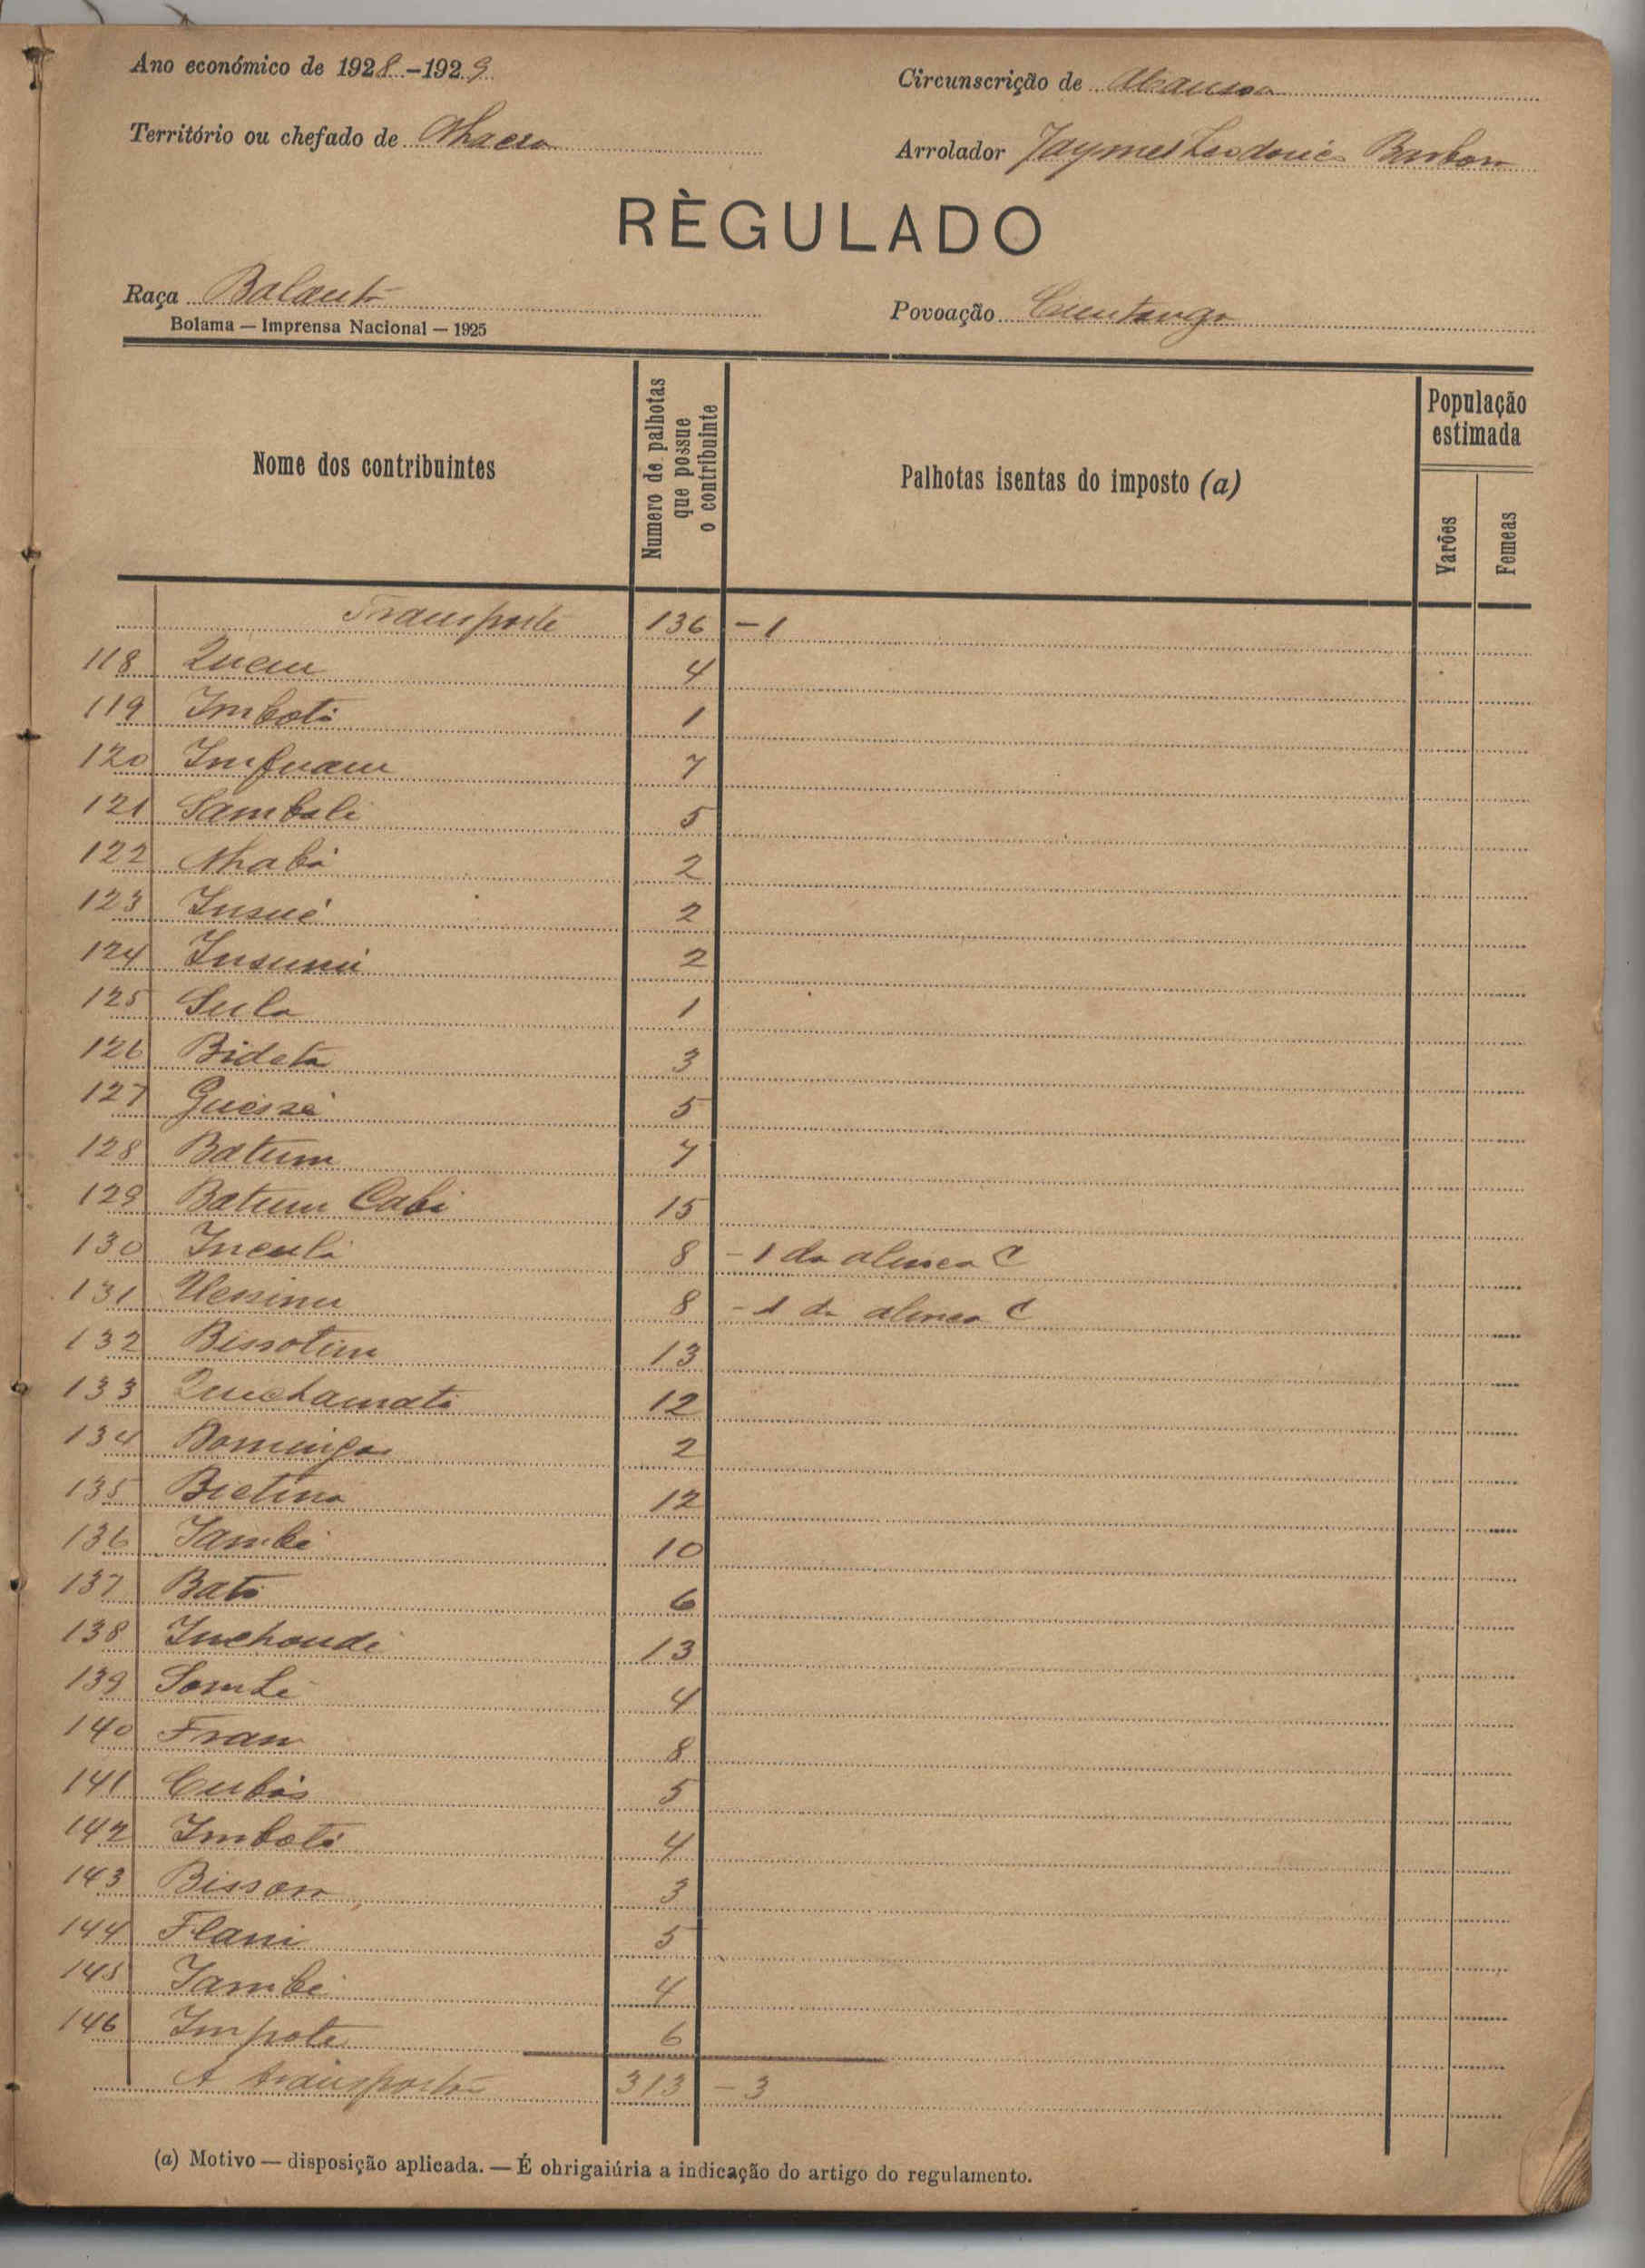 Ano económico de 1928-1929
Circunscrição de Mansoa
Território ou chefado de Nhacra
Arrolador Jaymes Barbosa
RÈGULADO
Raça Balanta
Povoação Cuntanga
Bolama — Imprensa Nacional — 1925
Nome dos contribuintes
Numero de palhotas
que possue
o contribuinte
Palhotas isentas do imposto (a)
População
estimada
Varões
Femeas
Transporte 136 -1
118 Quem 4
119 Imboti 1
120 Imfuam 7
121 Sambali 5
122 Nhabá 2
123 Insué 2
124 Insumú 2
125 Sula 1
126 Bideta 3
127 5
128 Batum 7
129 Batum Cabi 15
130 Inculi 8 - 1 da alinea C
131 8 - 1 da alinea C
132 Bissotim 13
133 12
134 Domingos 2
135 Bietina 12
136 Tambi 10
137 Bati 6
138 Inchondi 13
139 4
140 Fran 8
141 Cubós 5
142 Imboti 4
143 Bissam 3
144 Flani 5
145 Tambi 4
146 Impote 6
A transportar 313 - 3
(a) Motivo — disposição aplicada. — É obrigaiúria a indicação do artigo do regulamento.